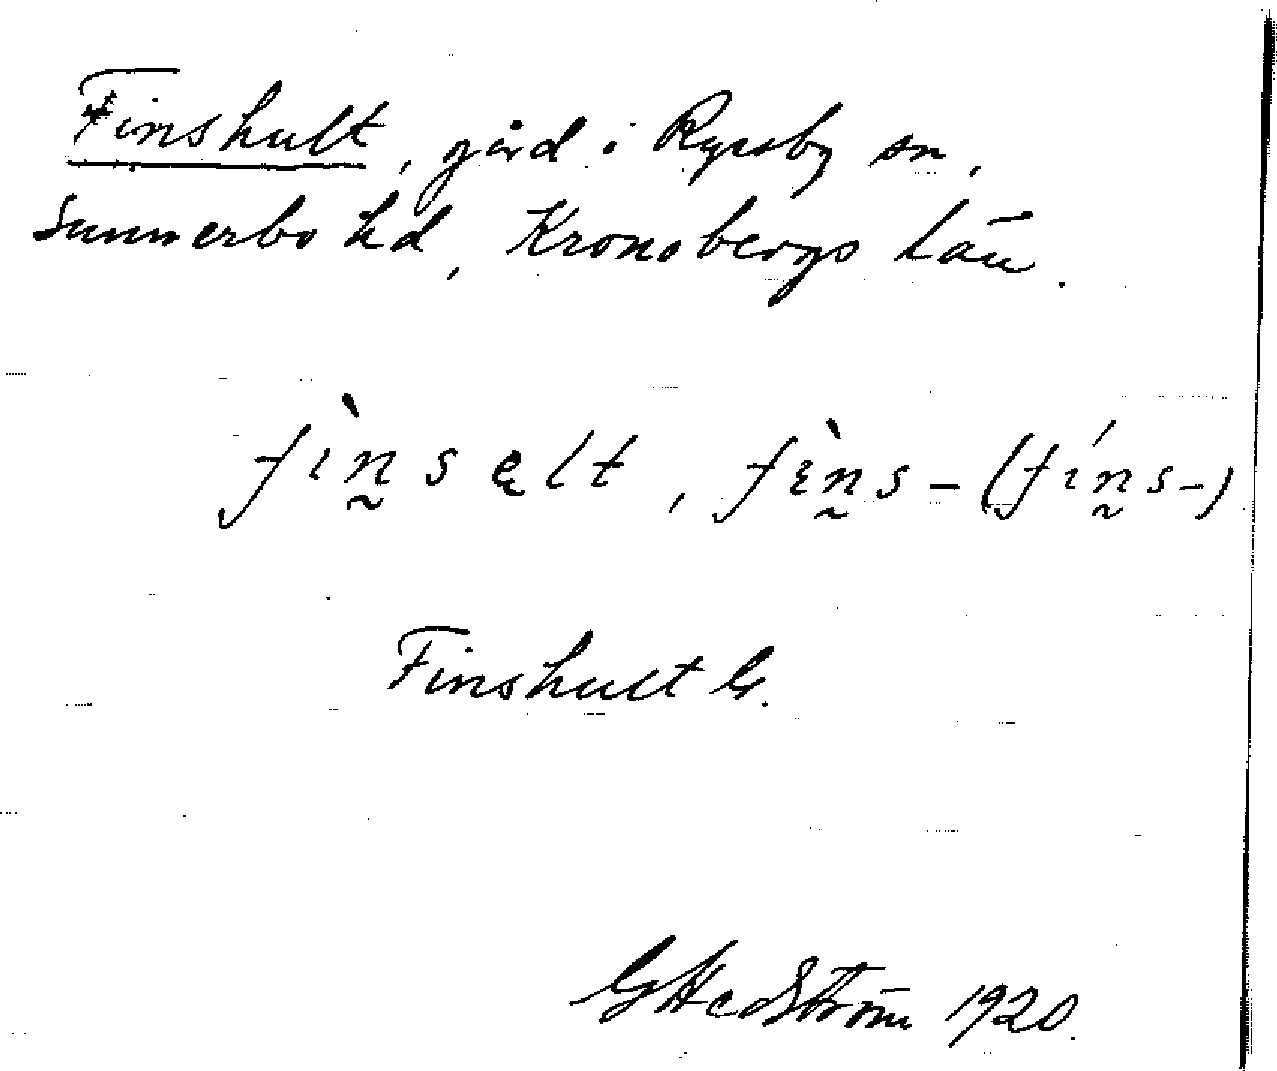 Finshult, gård i Ryssby sn,
Sunnerbo hd, Kronobergs län.
fìn̰sęlt, fɛ̀n̰s- (fín̰s-)
Finshult G.
G Hedström 1920.